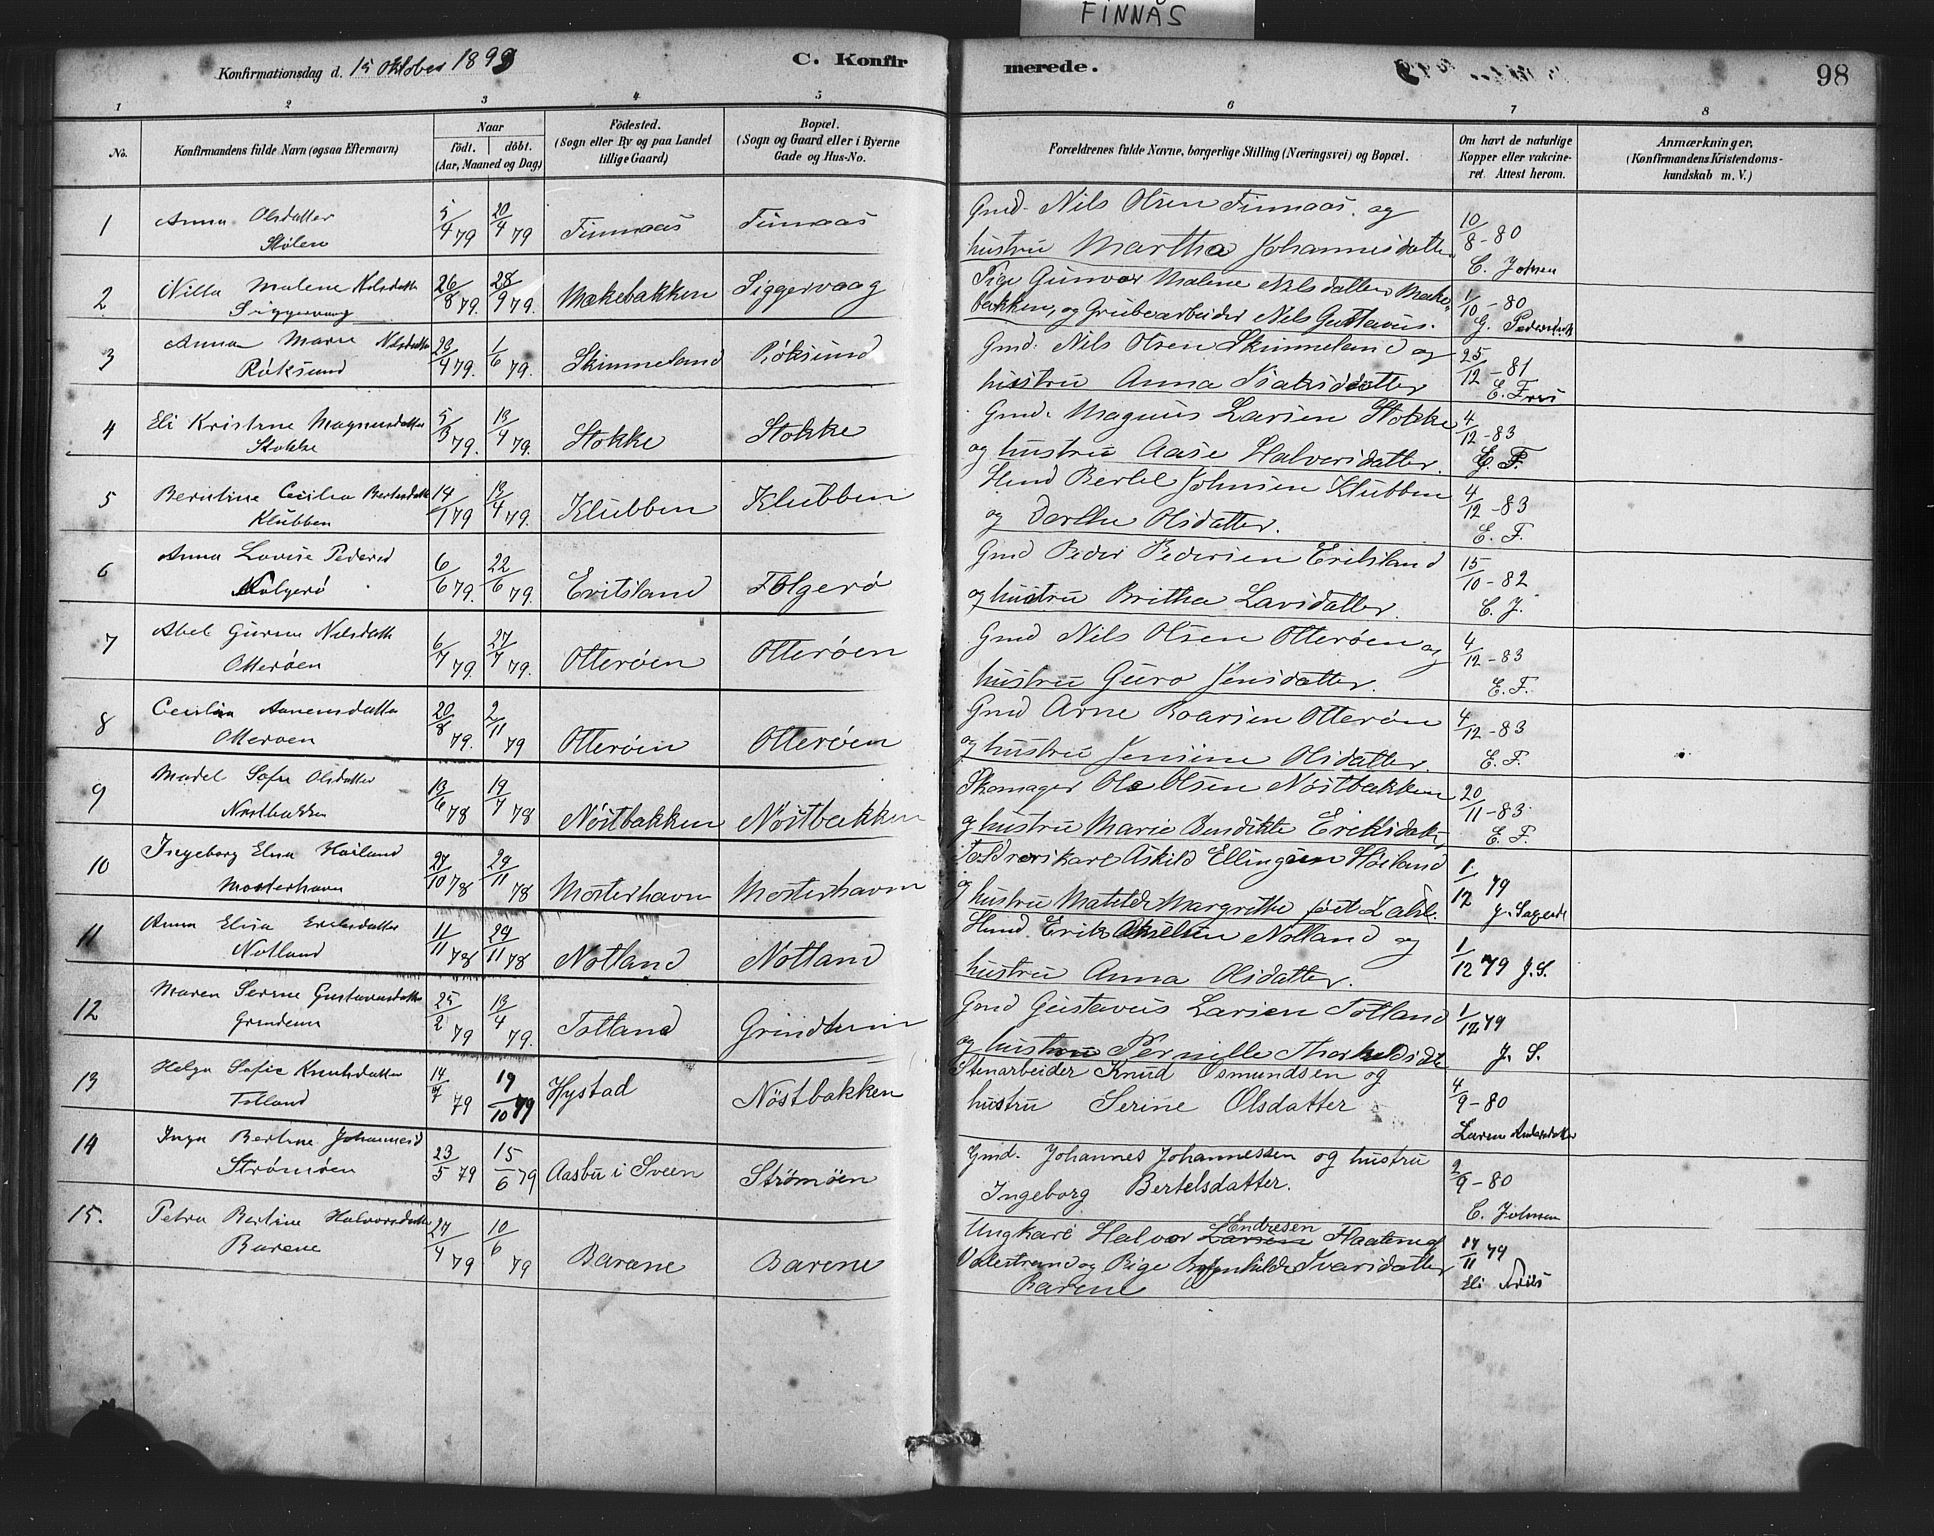 FINNÅS
Konfirmationsdag d. 15 Oktober 1893
C. Konfirmerede.
98
1 2 3 4 5 6 7 8
No.
Konfirmandens fulde Navn (ogsaa Efternavn)
Naar
födt. döbt.
(Aar, Maaned og Dag)
Födested.
(Sogn eller By og paa Landet
tillige Gaard)
Bopæl.
(Sogn og Gaard eller i Byerne
Gade og Hus-No.
Forældrenes fulde Navne, borgerlige Stilling (Næringsvei) og Bopæl.
Om havt de naturlige
Kopper eller vakcine-
ret. Attest herom.
Anmærkninger,
(Konfirmandens Kristendoms-
kundskab m. V.)
1 Anna Olsdatter 5/4 79 20/4 79 Finnaas Finnaas Gmd. Nils Olsen Finnaas og 10/8-80
Stölen hustru Martha Johannesdatter C. Johnsen
2 Nilla Malene Nilsdatter 26/8 79. 28/9 79. Mækebakken Siggervaag Pige Gunvor Malene Nilsdatter Mæke- 1/10-80
Siggervaag bakken, og Grubearbeider Nils Gustavus. G.
3 Anna Marie Nilsdatter 23/4 79. 1/6 79. Skimmeland Röksund Gmd. Nils Olsen Skimmeland og 25/12-81
Röksund hustru Anna Isaksdatter E. Friis
4 Eli Kristine Magnusdatter 5/3 79. 13/4 79. Stokke Stokke Gmd. Magnus Larsen Stokke 4/12-83
Stokke og hustru Aase Halvorsdatter. E. F.
5 Berntine Cecilia Bertelsdatter 14/1 79 13/4 79. Klubben Klubben Hmd Bertel Johnsen Klubben 4/12-83
Klubben og Dorthe Olsdatter. E. F.
6 Anna Lovise Pedersd 6/6 79. 22/6 79. Eritsland Folgerö Gmd Peder Pedersen Eritsland 15/10-82
Folgerö og hustru Britha Larsdatter. C. J.
7 Abel Gurine Nilsdatt 6/7 79. 27/7 79. Otteröen Otteröen Gmd Nils Olsen Otteröen og 4/12-83
Otteröen hustru Guro Jensdatter. E. F.
8 Cecilia Arnensdatter 20/8 79. 2/11 79 Otteröen Otteröen Gmd Arne Roarsen Otteröen 4/12-83
Otteröen og hustru Jensine Olsdatter. E. F.
9 Madel Sofie Olsdatter 13/6 78 19/7 78 Nöstbakken Nöstbakken Skomager Ole Olsen Nöstbakken 20/11-83.
Nöstbakken og hustru Marie Bendikte Eriksdatt, E. F.
10 Ingeborg Elisa Höiland 27/10 78 29/11 78 Mosterhavn Mosterhavn Askild Ellingsen Höiland 1/12 79
Mosterhavn og hustru Matilde Margrithe föet Zahl. J.
11 Anna Elisa Eriksdatter 11/11 78 29/11 78 Notland Notland Hmd. Erik Notland og 1/12 79 J. S.
Notland hustru Anna Olsdatter.
12 Maren Serine Gustavusdatter 25/2 79 13/4 79. Totland Grindheim Gmd Gustavus Larsen Totland 1/12 79
Grindeim og hustru Pernille Thorkeldsdt J. S.
13 Helga Sofie Knutsdatter 14/7 79 19/10 79 Hystad Nöstbakken Stenarbeider Knud Osmundsen og 4/9-80
Totland hustru Serine Olsdatter Laren Andersdatter
14 Inga Bertine Johannesd 23/5 79 15/6 79 Aasbu i Sveen Strømøen Gmd. Johannes Johannessen og hustru 2/9-80
Strømøen Ingeborg Bertelsdatter. C. Johnsen
15. Petra Bertine Halvorsdatter 27/4 79 10/6 79 Barane Barene Ungkarl Halvor Larsen Endresen 17/11 79
Barene Valestrand og Pige Ivarsdatter Eli Friis
Barene